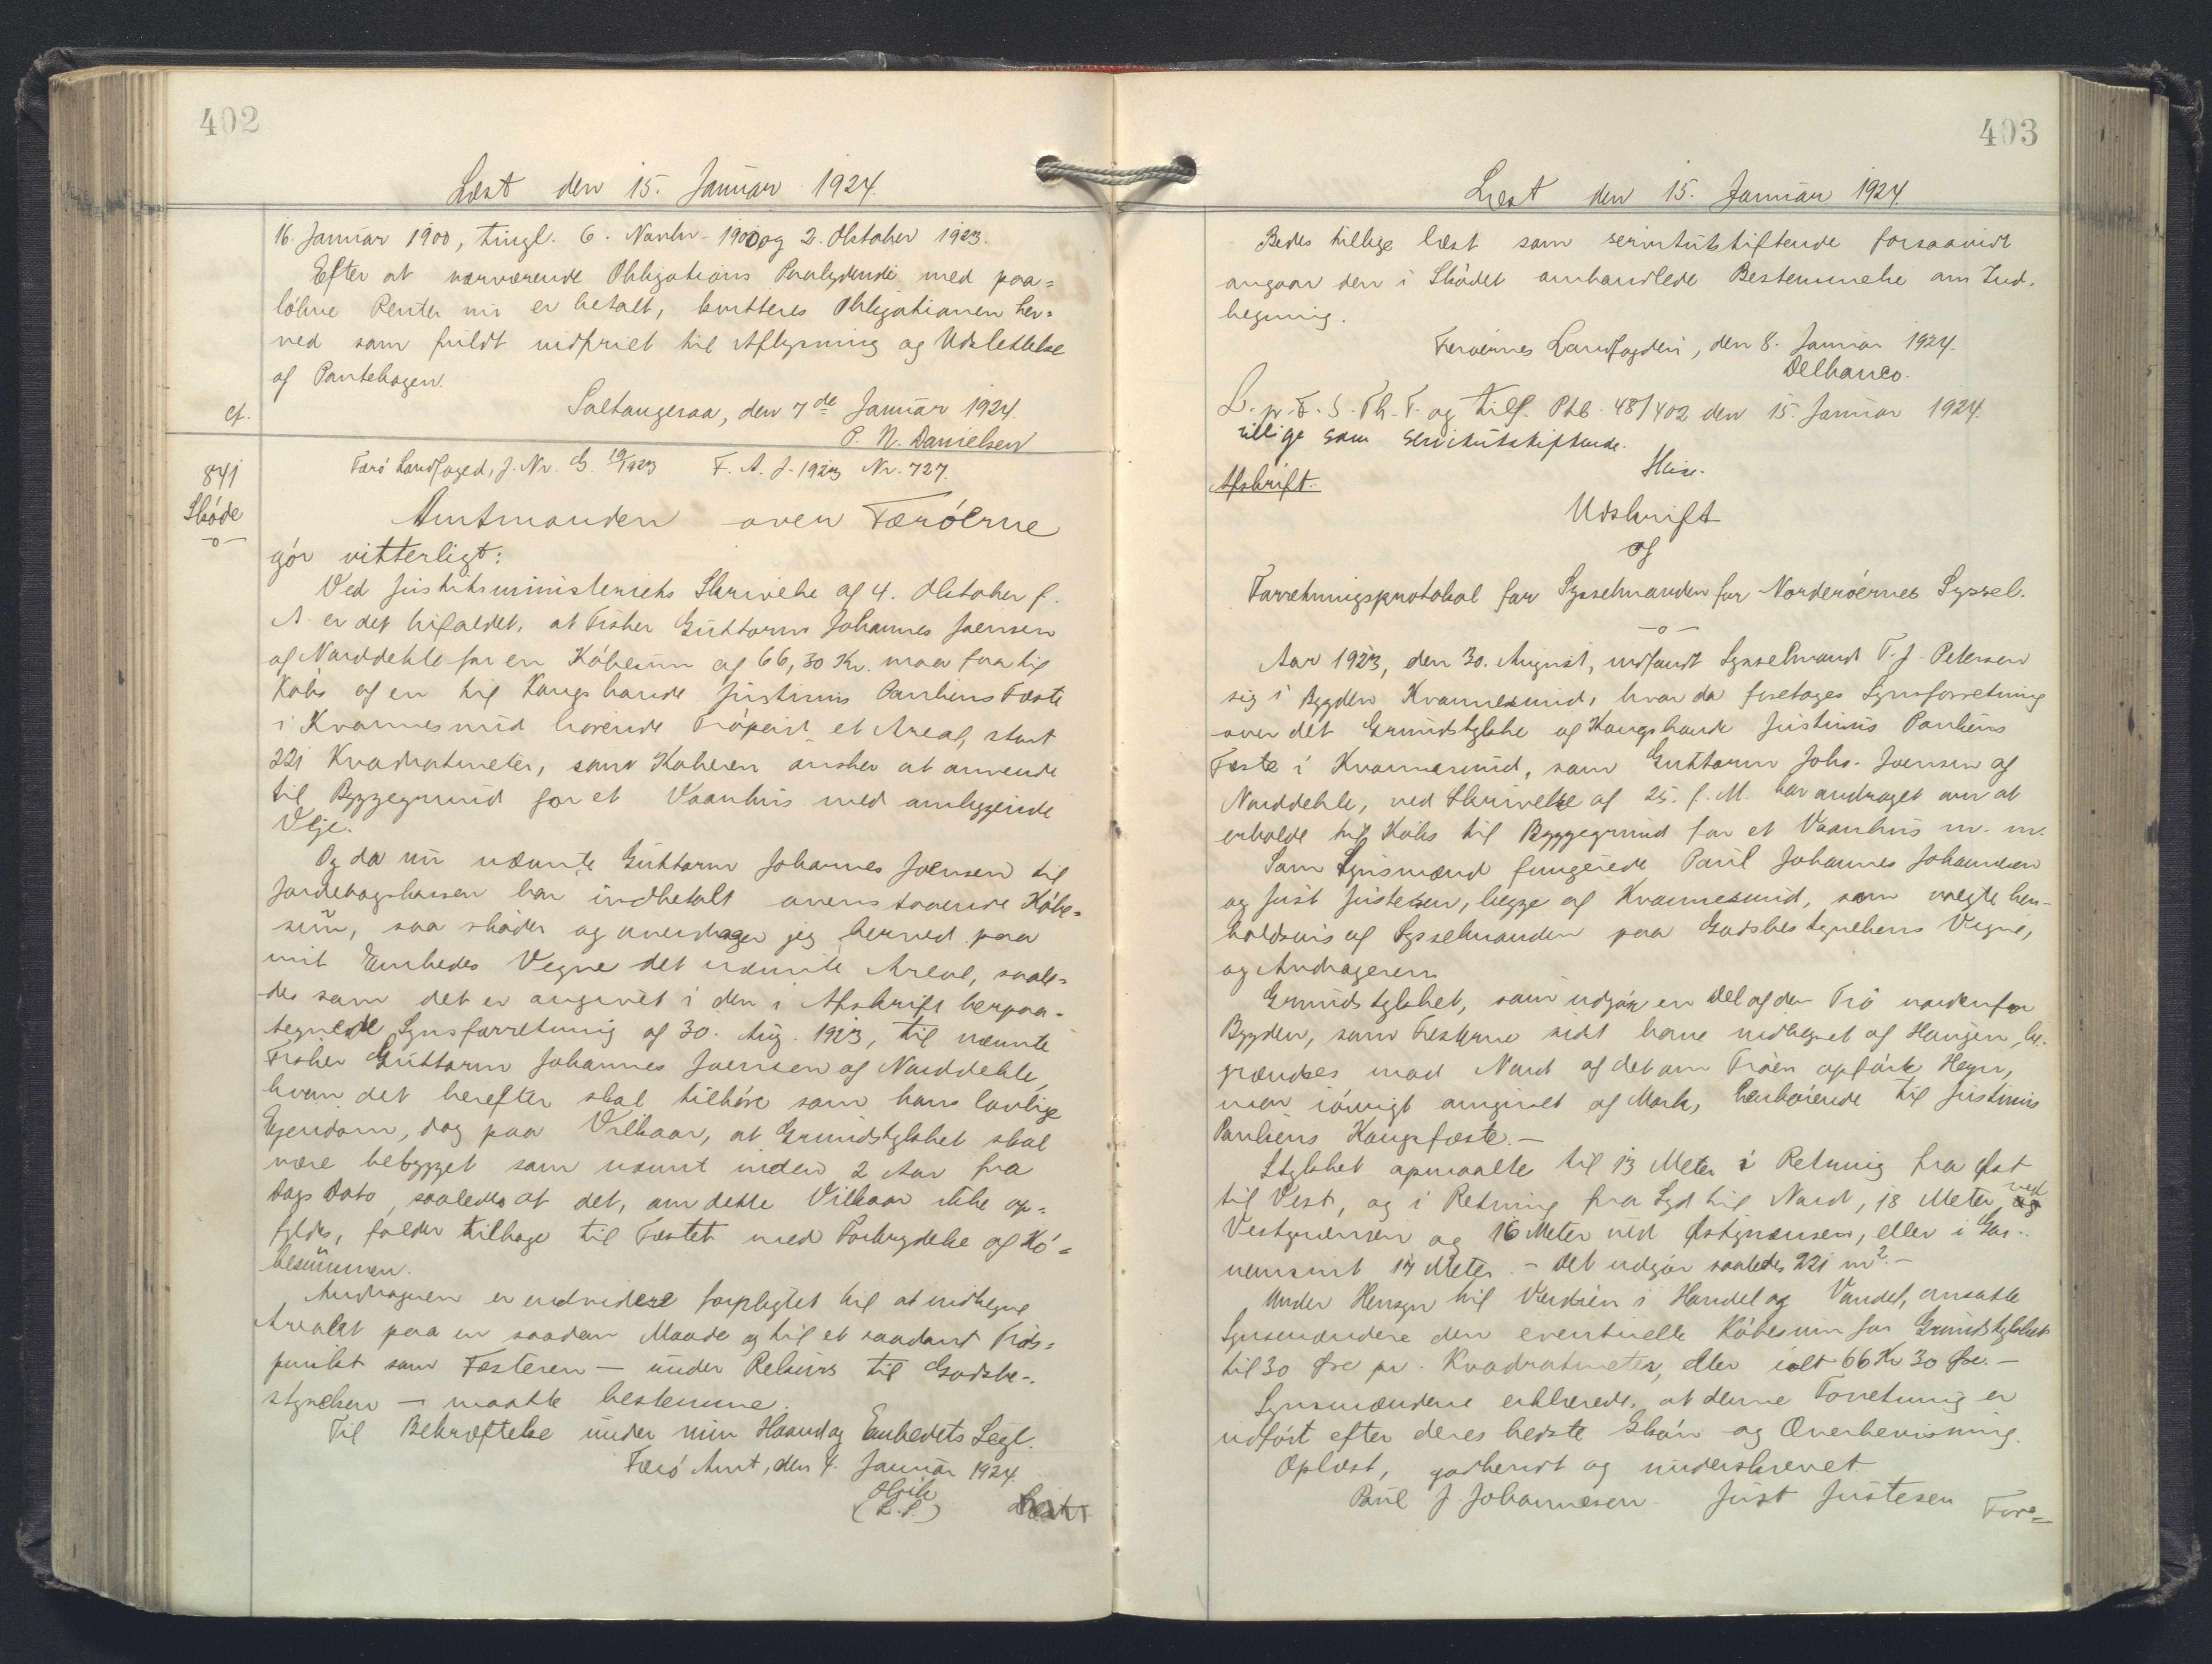 402
Læst den 15. Januar 1924.
16. Januar 1900, tingl. 6. Novbr. 1900 og 2. Oktober 1923.
Efter at nærværende Obligations Paalydende med paa=
løbne Renter nu er betalt, kvitteres Obligationen her=
ved som fuldt indfriet til Aflysning og Udslettelse
af Pantebogen.
Saltangeraa, den 7de Januar 1924.
cf.
P. N. Danielsen
841
Skøde
-o-
Færø Landfoged, J. Nr. G. 19/1923 F. A. J. 1923 Nr. 727.
Amtmanden over Færöerne
gör vitterligt:
Ved Justitsministeriets Skrivelse af 4. Oktober f.
A. er det bifaldet, at Fisker Guttorm Johannes Joensen
af Norddeble for en Købesum af 66,30 Kr. maa faa til
Købs af en til Kongsbonde Justinus Paulsens Fæste
i Kvannesund hörende Tröpart et Areal, stort
221 Kvadratmeter, som Köberen ønsker at anvende
til Byggegrund for et Vaanhus med omliggende
Veje.
Og da nu nævnte Guttorm Johannes Joensen til
Jordebogskassen har indbetalt ovenstaaende Købe=
sum, saa skøder og overdrager jeg herved paa
mit Embedes Vegne det nævnte Areal, saale=
des som det er angivet i den i Afskrift herpaa-
tegnede Synsforretning af 30. Aug. 1923, til nævnte
Fisker Guttorm Johannes Joensen af Norddeble,
hvem det herefter skal tilhøre som hans lovlige
Ejendom, dog paa Vilkaar, at Grundstykket skal
være bebygget som nævnt inden 2 Aar fra
Dags Dato, saaledes at det, om dette Vilkaar ikke op=
fyldes, falder tilbage til Fæstet med Fortrydelse af Kö=
besummen.
Andrageren er endvidere forpligtet til at indhegne
Arealet paa en saadan Maade og til et saadant Tids=
punkt som Fæsteren — under Rekurs til Godsbe-
styrelsen — maatte bestemme.
Til Bekræftelse under min Haand og Embedets Segl.
Færö Amt, den 4. Januar 1924.
Olrik
(L.S.)
403
Læst den 15. Januar 1924
Bedes tillige læst som servitutstiftende forsaavidt
angaar den i Skødet omhandlede Bestemmelse om Ind-
hegning.
Færøernes Landfogderi, den 8. Januar 1924.
Delbanco.
L. p. F. S. Th. T. og tilf. Ptb. 48/402 den 15. Januar 1924.
tillige som servitutstiftende.
Heise.
Afskrift.
Udskrift
af
Forretningsprotokol for Sysselmanden for Norderöernes Syssel.
-o-
Aar 1923, den 30. August, indfandt Sysselmand T. J. Petersen
sig i Bygden Kvannesund, hvor da foretages Synsforretning
over det Grundstykke af Kongsbonde Justinus Paulsens
Fæste i Kvannesund, som Guttorm Johs. Joensen af
Norddeble, ved Skrivelse af 25. f. M. har andraget om at
erholde til Købs til Byggegrund for et Vaanhus m. m.
Som Synsmænd fungerede Paul Johannes Johannesen
og Just Justesen, begge af Kvannesund, som valgte hen-
holdsvis af Sysselmanden paa Godsbestyrelsens Vegne,
og Andrageren
Grundstykket, som udgör en Del af den Trö nordenfor
Bygden, som Fæsterne sidst have indhegnet af Haugen, be-
grændses mod Nord af det om Tröen opførte Hegn,
men iøvrigt omgivet af Mark, henhörende til Justinus
Paulsens Kongsfæste.—
Stykket opmaalte til 13 Meter i Retning fra Øst
til Vest, og i Retning fra Syd til Nord, 18 Meter ved
Vestgrænsen og 16 Meter ved Østgrænsen, eller i Gen-
nemsnit 17 Meter. — det udgör saaledes 221 m².—
Under Hensyn til Værdien i Handel og Vandel, ansatte
Synsmændene den eventuelle Købesum for Grundstykket
til 30 Øre pr. Kvadratmeter, eller ialt 66 Kr 30 Øre.—
Synsmændene erklærede, at denne Forretning er
udfört efter deres bedste Skön og Overbevisning.
Oplæst, godkendt og underskrevet
Paul J. Johannesen. Just Justesen
Fore=